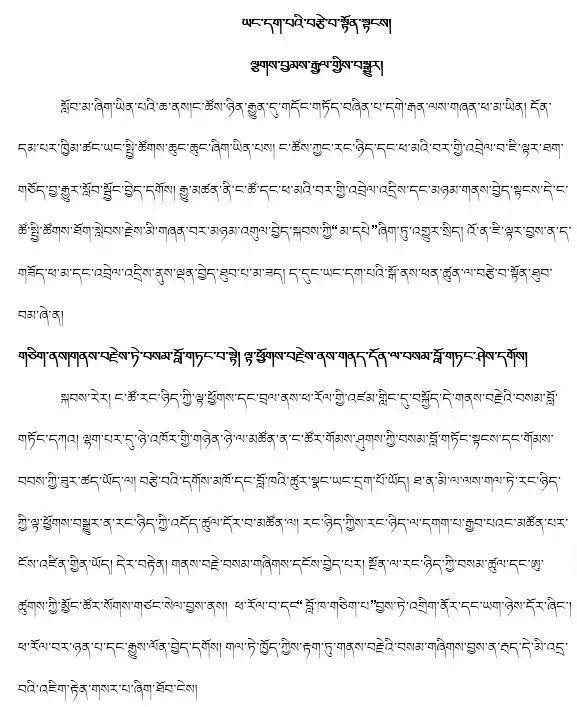 ཡང་དག་པའི་བརྩེ་བ་སྟོན་སྟངས།
ལྕགས་བྱམས་རྒྱལ་གྱིས་བསྒྱུར།
སློབ་མ་ཞིག་ཡིན་པའི་ཆ་ནས།ང་ཚོས་ཉིན་རྒྱུན་དུ་གདོང་གཏོད་བཞིན་པ་དགེ་རྒན་ལས་གཞན་ཕ་མ་ཡིན། དོན་
དམ་པར་ཁྱིམ་ཚང་ཡང་སྤྱི་ཚོགས་ཆུང་ཆུང་ཞིག་ཡིན་པས། ང་ཚོས་ཀྱང་རང་ཉིད་དང་ཕ་མའི་བར་གྱི་འབྲེལ་བ་ཇི་ལྟར་ཐག་
གཅོད་བྱ་རྒྱུར་སློབ་སྦྱོང་བྱེད་དགོས། རྒྱུ་མཚན་ནི་ང་ཚོ་དང་ཕ་མའི་བར་གྱི་འབྲེལ་འདྲིས་དང་མཉམ་གནས་བྱེད་སྟངས་དེ་ང་
ཚོ་སྤྱི་ཚོགས་ཐོག་སླེབས་རྗེས་མི་གཞན་བར་མཉམ་འགུལ་བྱེད་སྐབས་ཀྱི“མ་དཔེ”ཞིག་ཏུ་འགྱུར་སྲིད། འོ་ན་ཇི་ལྟར་བྱས་ན་ད་
གཟོད་ཕ་མ་དང་འབྲེལ་འདྲིས་ནུས་ལྡན་བྱེད་ཐུབ་པ་མ་ཟད། ད་དུང་ཡང་དག་པའི་སྒོ་ནས་ཕན་ཚུན་ལ་བརྩེ་བ་སྟོན་ཐུབ་
བམ་ཞེ་ན།
གཅིག་ནས།གནས་བརྗེས་ཏེ་བསམ་བློ་གཏང་བ་སྟེ། ལྟ་ཕྱོགས་བརྗེས་ནས་གནད་དོན་ལ་བསམ་བློ་གཏང་ཤེས་དགོས།
སྐབས་རེར། ང་ཚོ་རང་ཉིད་ཀྱི་ལྟ་ཕྱོགས་དང་བྲལ་ནས་ཕ་རོལ་གྱི་འཛམ་གླིང་དུ་བསྐྱོད་དེ་གནས་བརྗེའི་བསམ་བློ་
གཏོང་དཀའ། ལྷག་པར་དུ་ཉེ་འཁོར་གྱི་གཉེན་ཉེ་ལ་མཚོན་ན་ང་ཚོར་གོམས་ཤུགས་ཀྱི་བསམ་བློ་གཏོང་སྟངས་དང་གོམས་
བབས་ཀྱི་ཟུར་ཚད་ཡོད་ལ། བརྩེ་བའི་དགོས་མཁོ་དང་བློ་ཁའི་ཚུར་སྣང་ཡང་དྲག་པོ་ཡོད། ཐ་ན་མི་ལ་ལས་གལ་ཏེ་རང་ཉིད་
ཀྱི་ལྟ་ཕྱོགས་བསྒྱུར་ན་རང་ཉིད་ཀྱི་འདོད་ཚུལ་དོར་བ་མཚོན་ལ། རང་ཉིད་ཀྱིས་རང་ཉིད་ལ་དགག་པ་རྒྱབ་པའང་མཚོན་པར་
ངོས་འཛིན་གྱིན་ཡོད། དེར་བརྟེན། གནས་བརྗེ་བསམ་གཞིགས་དངོས་བྱེད་པར། སྔོན་ལ་རང་ཉིད་ཀྱི་བསམ་ཚུལ་དང་ཨུ་
ཚུགས་ཀྱི་མྱོང་ཚོར་སོགས་གཙང་སེལ་བྱས་ནས། ཕ་རོལ་བ་དང“བློ་ཁ་གཅིག་པ”བྱས་ཏེ་འགྲིག་ནོར་དང་ཡག་ཉེས་དོར་ཞིང་།
ཕ་རོལ་བར་ཉན་པ་དང་རྒྱུས་ལོན་བྱེད་དགོས། གལ་ཏེ་ཁྱོད་ཀྱིས་རྟག་ཏུ་གནས་བརྗེའི་བསམ་གཞིགས་བྱས་ན་ཧད་དེ་མི་འདྲ་
བའི་འཇིག་རྟེན་གསར་པ་ཞིག་ཐོབ་ངེས།